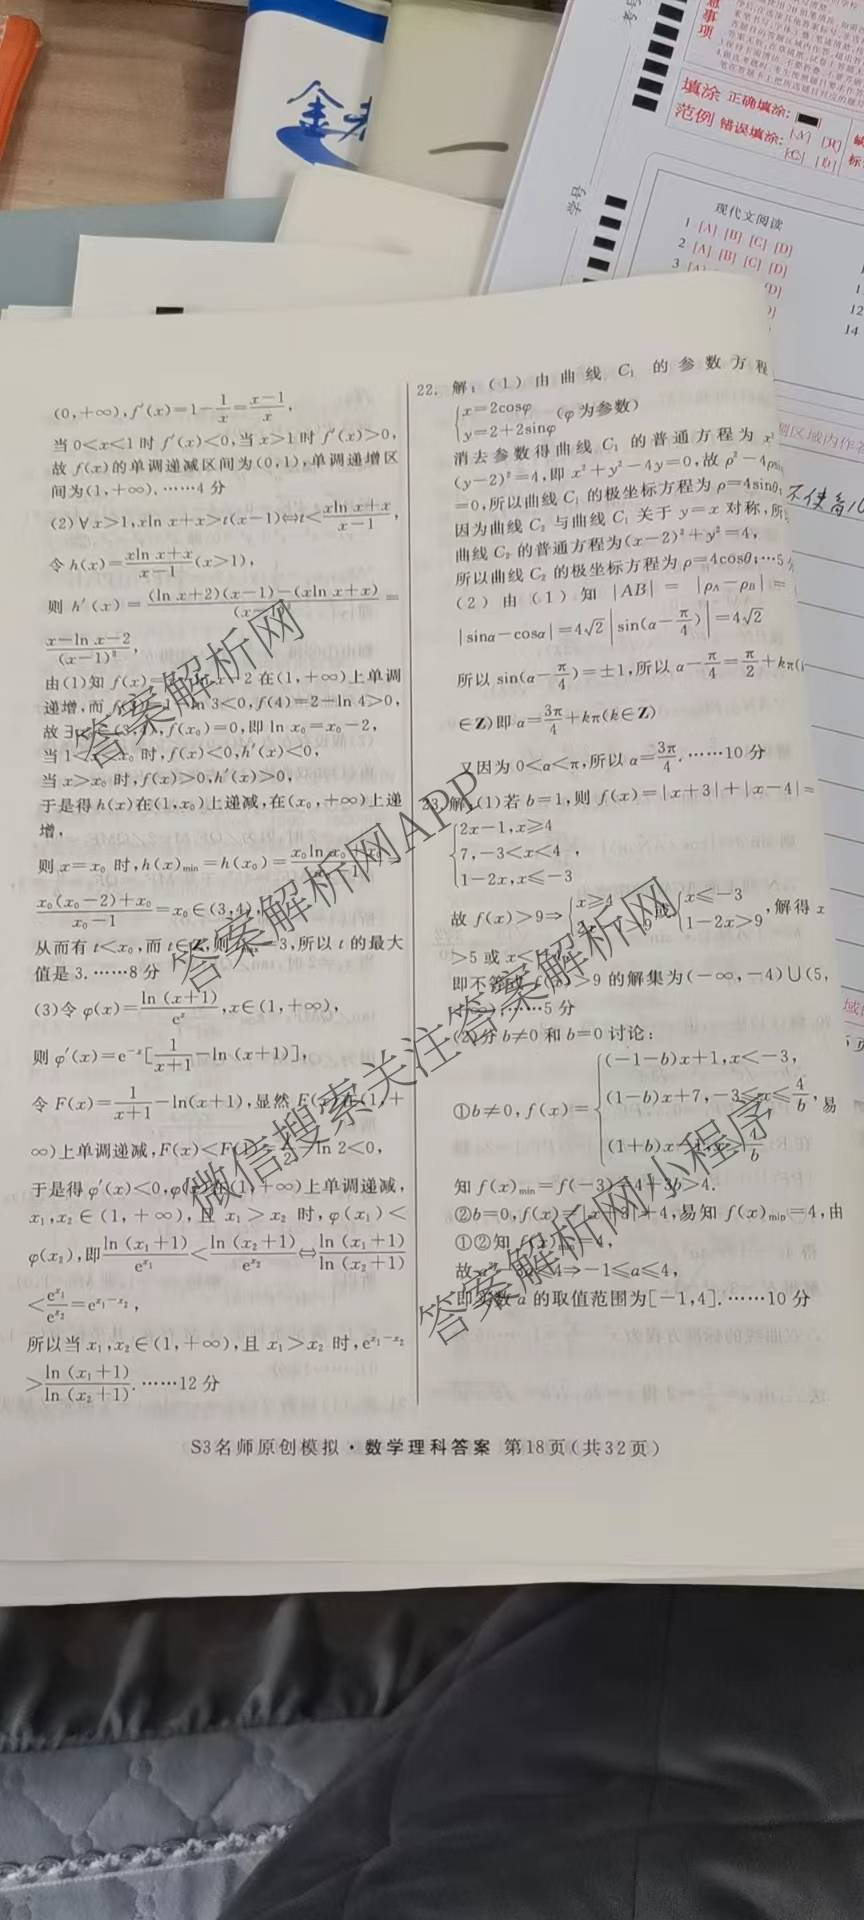 金
考号
事项
填涂范例
正确填涂:
错误填涂:
[A]
[C]
学号
现代文阅读
1 [A] [B] [C] [D]
2 [A] [B] [C] [D]
3
12
14
不使
(0,+∞),f′(x)=1-1/x=(x-1)/x,
当0<x<1时f′(x)<0,当x>1时f′(x)>0,
故f(x)的单调递减区间为(0,1),单调递增区
间为(1,+∞).……4分
(2)∀x>1,xln x+x>t(x-1)⇔t<(xln x+x)/(x-1),
令h(x)=(xln x+x)/(x-1)(x>1),
则h′(x)=((ln x+2)(x-1)-(xln x+x))/(x-1)²=
(x-ln x-2)/(x-1)²,
由(1)知f(x)= 2在(1,+∞)上单调
递增,而 ln 3<0,f(4)=2-ln 4>0,
故∃ f(x₀)=0,即ln x₀=x₀-2,
当1< 时,f(x)<0,h′(x)<0,
当x>x₀时,f(x)>0,h′(x)>0,
于是得h(x)在(1,x₀)上递减,在(x₀,+∞)上递
增,
则x=x₀时,h(x)min=h(x₀)=
(x₀(x₀-2)+x₀)/(x₀-1)=x₀∈(3,4),
从而有t<x₀,而t∈Z,则 =3,所以t的最大
值是3.……8分
(3)令φ(x)=ln (x+1)/eˣ,x∈(1,+∞),
则φ′(x)=e⁻ˣ[1/(x+1)-ln (x+1)],
令F(x)=1/(x+1)-ln(x+1),显然F(x)在(1,+
∞)上单调递减,F(x)<F(1)= ln 2<0,
于是得φ′(x)<0,φ(x)在(1,+∞)上单调递减,
x₁,x₂∈(1,+∞),且x₁>x₂时,φ(x₁)<
φ(x₂),即ln (x₁+1)/e^(x₁)<ln (x₂+1)/e^(x₂)⇔ln (x₁+1)/ln (x₂+1)
<e^(x₁)/e^(x₂)=e^(x₁-x₂),
所以当x₁,x₂∈(1,+∞),且x₁>x₂时,e^(x₁-x₂)
>ln (x₁+1)/ln (x₂+1).……12分
22. 解:(1)由曲线C₁的参数方程
{x=2cosφ
y=2+2sinφ (φ为参数)
消去参数得曲线C₁的普通方程为x²
(y-2)²=4,即x²+y²-4y=0,故ρ²-4ρsin
=0,所以曲线C₁的极坐标方程为ρ=4sinθ;
因为曲线C₂与曲线C₁关于y=x对称,所
曲线C₂的普通方程为(x-2)²+y²=4,
所以曲线C₂的极坐标方程为ρ=4cosθ;…5
(2)由(1)知|AB|=|ρA-ρB|=
|sinα-cosα|=4√2|sin(α-π/4)|=4√2
所以sin(α-π/4)=±1,所以α-π/4=π/2+kπ(
∈Z)即α=3π/4+kπ(k∈Z)
又因为0<α<π,所以α=3π/4.……10分
23.解:(1)若b=1,则f(x)=|x+3|+|x-4|=
{2x-1,x≥4
7,-3<x<4 ,
1-2x,x≤-3
故f(x)>9⇒{x≥4 或{x≤-3
1-2x>9,解得x
>5或x<
即不等式f(x)>9的解集为(-∞,-4)∪(5,
……5分
(2)分b≠0和b=0讨论:
①b≠0,f(x)={(-1-b)x+1,x<-3,
(1-b)x+7,-3≤x≤4/b,易
(1+b)x
知f(x)min=f(-3)=4+3b>4.
②b=0,f(x)=|x+3|+4,易知f(x)min=4,由
①②知
故 ⇒-1≤a≤4,
即实数a的取值范围为[-1,4].……10分
S3名师原创模拟·数学理科答案 第18页(共32页)
答案解析网
答案解析网APP
微信搜索关注答案解析网
答案解析网小程序